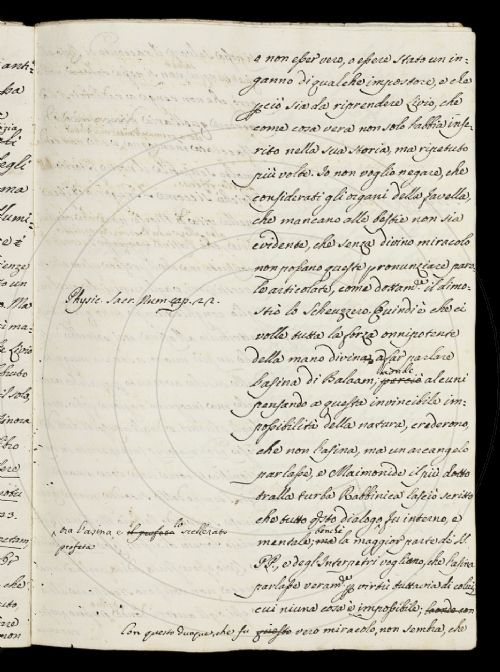 o non esser vero, o essere stato un in-
ganno di qualche impostore, e che
pciò sia da riprendere Livio, che
come cosa vera non solo l'abbia inse-
rito nella sua storia, ma ripetuto
più volte. Io non voglio negare, che
considerati gli organi della favella,
che mancano alle bestie non sia
evidente, che senza divino miracolo
non possano queste pronunziare paro-
le articolate, come dottamte. il dimo-
Physic. Sacr. Num. cap. 22.
strò lo Scheuzzero. Quindi è che ci
volle tutta la forza onnipotente
della mano divina a far parlare
l'asina di Balaam, perciò onde alcuni
pensando a questa invincibile im-
possibilità della natura, crederono,
che non l'asina, ma un arcangelo
parlasse, e Maimonide il più dotto
tralla turba Rabbinica lasciò scritto
che tutto qsto dialogo fu interno, e
tra l'asina e il profeta lo scellerato
profeta
mentale, ma benchè la maggior parte de SS.
PP., e degl'Interpetri vogliono, che l'asina
parlasse veramte. p virtù tuttavia di colui,
cui niuna cosa è impossibile;
Con questo dunque, che fu questo vero miracolo, non sembra, che